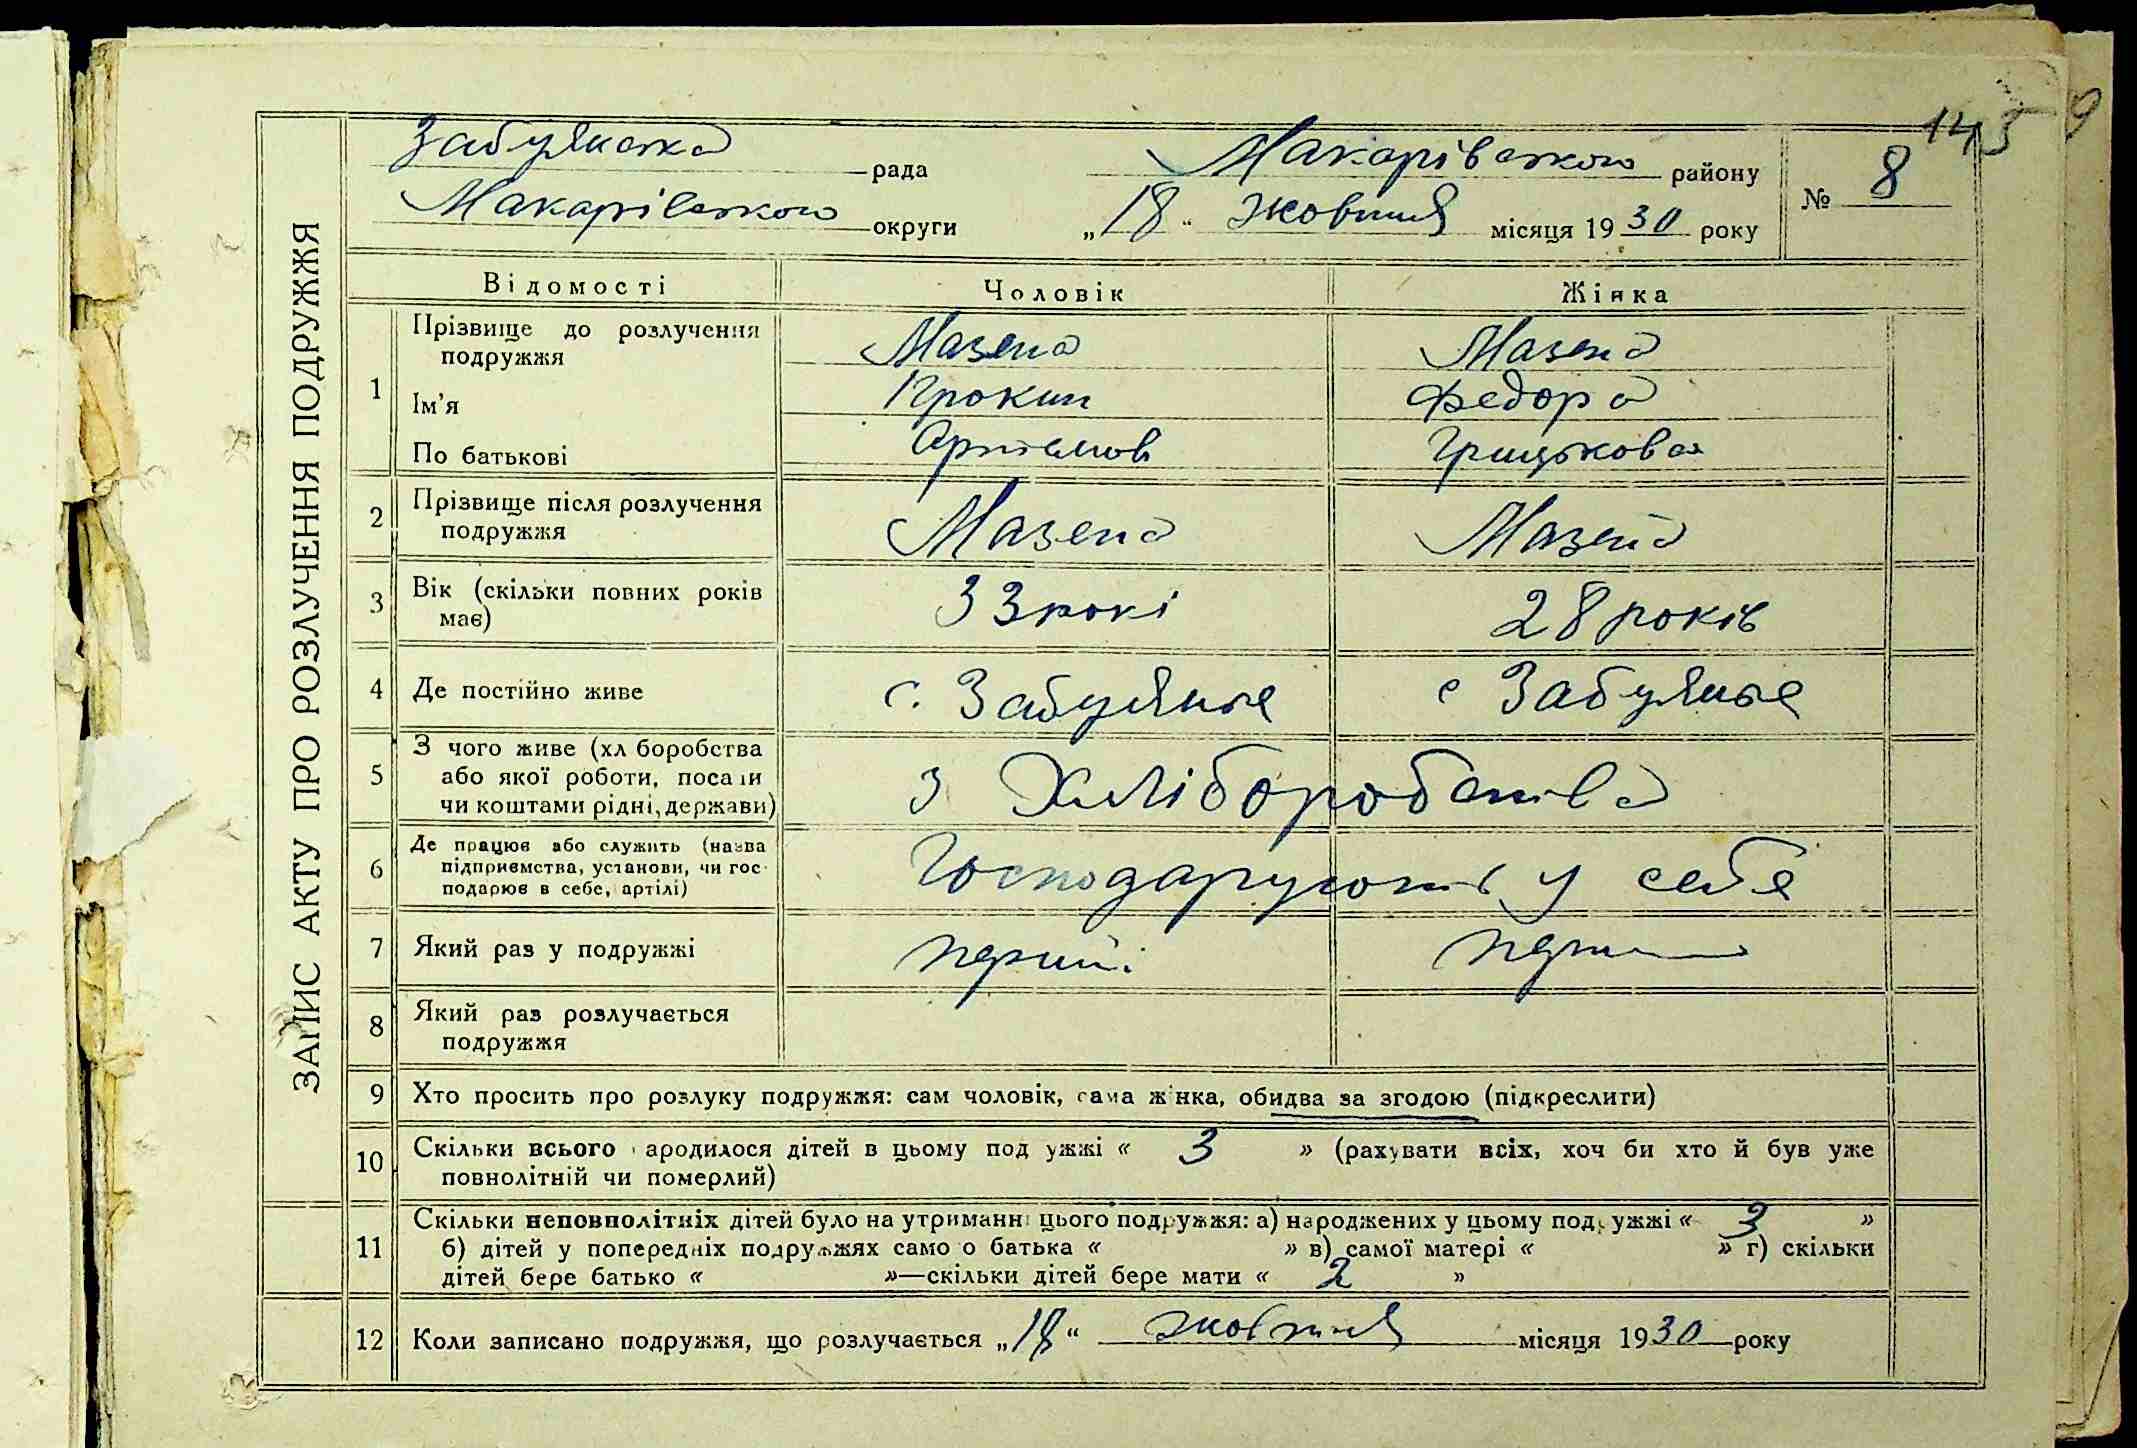 145
ЗАПИС АКТУ ПРО РОЗЛУЧЕННЯ ПОДРУЖЖЯ
Забуянська рада Макарівського району
Макарівського округи „18“ жовтня місяця 1930 року № 8
Відомості Чоловік Жінка
1 Прізвище до розлучення подружжя Мазепа Мазепа
Ім'я Прокип Федора
По батькові Артемов Грицькова
2 Прізвище після розлучення
подружжя Мазепа Мазепа
3 Вік (скільки повних років
має) 33 рокі 28 років
4 Де постійно живе с. Забуянье с Забуянье
5 З чого живе (хл боробства
або якої роботи, посади
чи коштами рідні, держави) з Хліборобства
6 Де працює або служить (назва
підприємства, установи, чи гос-
подарює в себе, артілі) Господарують у себе
7 Який раз у подружжі перший перший
8 Який раз розлучається
подружжя
9 Хто просить про розлуку подружжя: сам чоловік, сама жінка, обидва за згодою (підкреслити)
10 Скільки всього народилося дітей в цьому подружжі « 3 » (рахувати всіх, хоч би хто й був уже
повнолітній чи померлий)
11 Скільки неповнолітніх дітей було на утриманні цього подружжя: а) народжених у цьому подружжі « 3 »
б) дітей у попередніх подружжях само о батька « » в) самої матері « » г) скільки
дітей бере батько « »—скільки дітей бере мати « 2 »
12 Коли записано подружжя, що розлучається „18“ жовтня місяця 1930 року